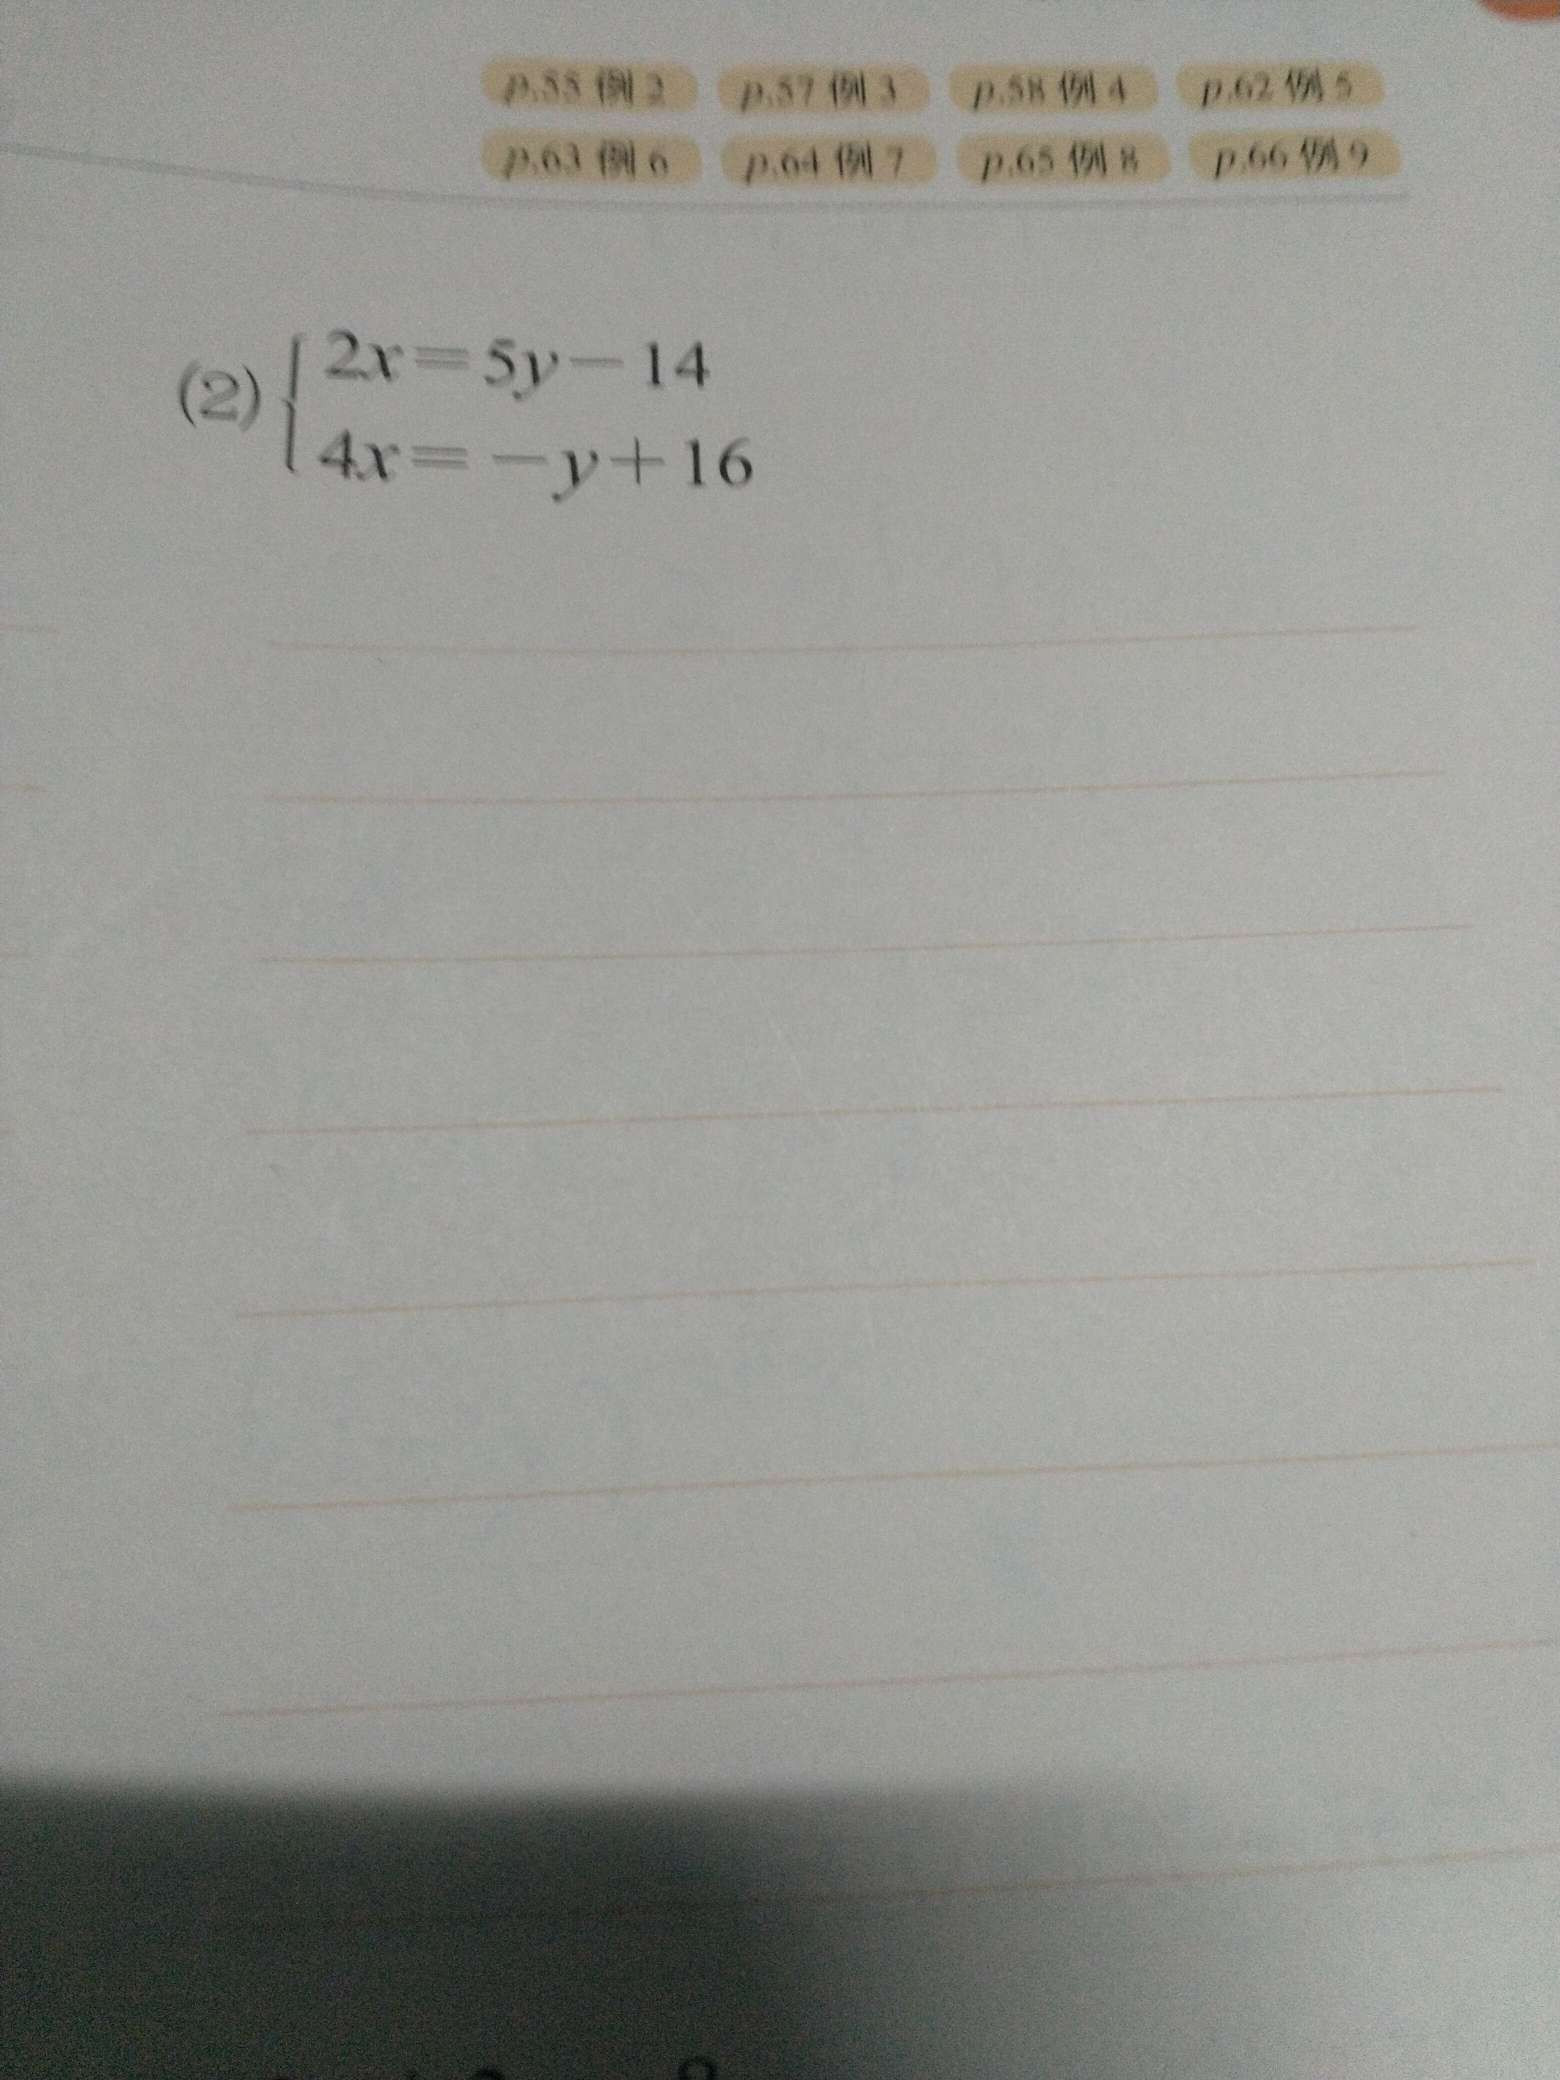 p.55 例 2 p.57 例 3 p.58 例 4 p.62 例 5
p.63 例 6 p.64 例 7 p.65 例 8 p.66 例 9
(2) { 2x=5y-14
4x=-y+16